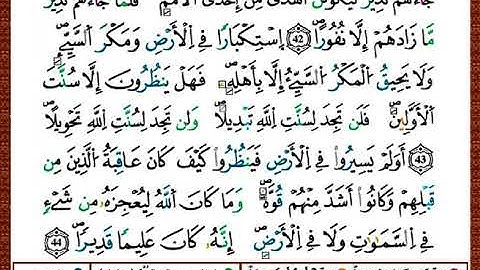 جَاءَهُمْ نَذِيرٌ لَيَكُونُنَّ أَهْدَىٰ مِنْ إِحْدَى الْأُمَمِ ۖ فَلَمَّا جَاءَهُمْ نَذِيرٌ
مَّا زَادَهُمْ إِلَّا نُفُورًا ﴿42﴾ اسْتِكْبَارًا فِي الْأَرْضِ وَمَكْرَ السَّيِّئِ ۚ
وَلَا يَحِيقُ الْمَكْرُ السَّيِّئُ إِلَّا بِأَهْلِهِ ۚ فَهَلْ يَنظُرُونَ إِلَّا سُنَّتَ
الْأَوَّلِينَ ۚ فَلَن تَجِدَ لِسُنَّتِ اللَّهِ تَبْدِيلًا ۖ وَلَن تَجِدَ لِسُنَّتِ اللَّهِ تَحْوِيلًا
﴿43﴾ أَوَلَمْ يَسِيرُوا فِي الْأَرْضِ فَيَنظُرُوا كَيْفَ كَانَ عَاقِبَةُ الَّذِينَ مِن
قَبْلِهِمْ وَكَانُوا أَشَدَّ مِنْهُمْ قُوَّةً ۚ وَمَا كَانَ اللَّهُ لِيُعْجِزَهُ مِن شَيْءٍ
فِي السَّمَٰوَٰتِ وَلَا فِي الْأَرْضِ ۚ إِنَّهُ كَانَ عَلِيمًا قَدِيرًا ﴿44﴾